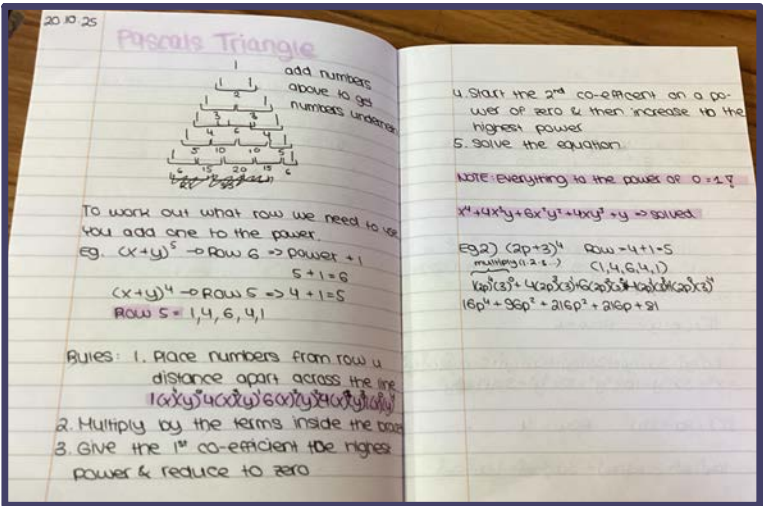 20 10 25
Pascals Triangle
1
1 1
1 2 1
1 3 3 1
1 4 6 4 1
1 5 10 10 5 1
1 6 15 20 15 6 1
add numbers
above to get
numbers underneath
To work out what row we need to use
you add one to the power.
eg. (x+y)⁵ → Row 6 => power + 1
5 + 1 = 6
(x+y)⁴ → Row 5 => 4 + 1 = 5
Row 5 = 1, 4, 6, 4, 1
Rules: 1. Place numbers from row a
distance apart across the line
2. Multiply by the terms inside the
3. Give the 1st co-efficient the highest
power & reduce to zero
4. Start the 2nd co-efficent on a po-
wer of zero & then increase to the
highest power
5. Solve the equation.
NOTE: Everything to the power of 0 = 1!
x⁴ + 4x³y + 6x²y² + 4xy³ + y => solved
Eg 2) (2p+3)⁴ Row = 4+1=5
(1,4,6,4,1)
16p⁴ + 96p² + 216p² + 216p + 81